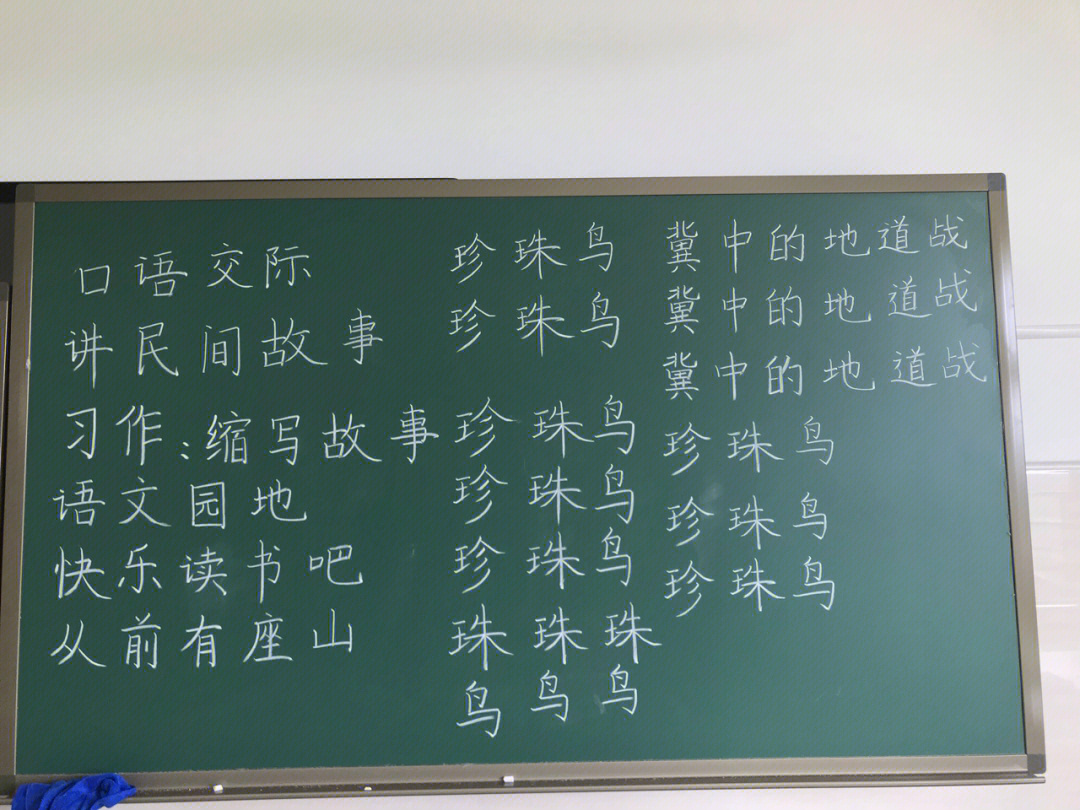 口语交际
讲民间故事
习作:缩写故事
语文园地
快乐读书吧
从前有座山
珍珠鸟
珍珠鸟
珍珠鸟
珍珠鸟
珍珠鸟
珠珠珠
鸟鸟鸟
冀中的地道战
冀中的地道战
冀中的地道战
珍珠鸟
珍珠鸟
珍珠鸟